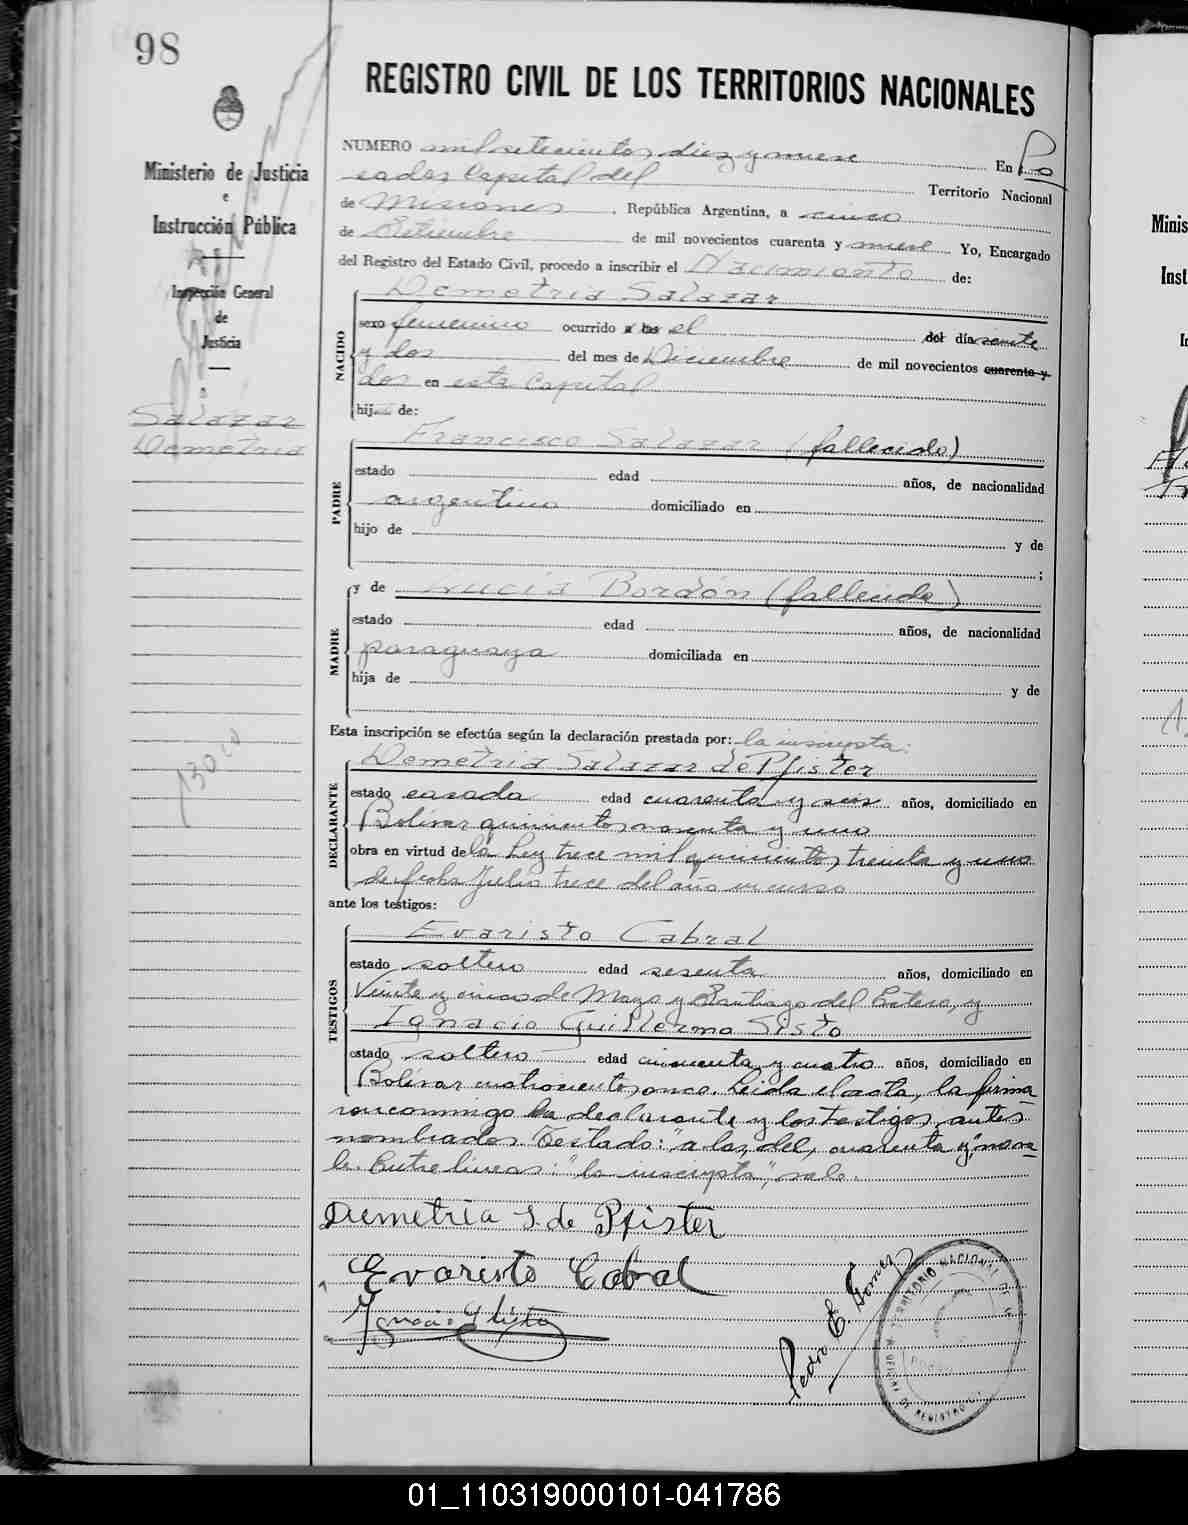 98
REGISTRO CIVIL DE LOS TERRITORIOS NACIONALES
Ministerio de Justicia
e
Instrucción Pública
Inspección General
de
Justicia
Salazar
Demetria
NUMERO mil setecientos diez y nueve En Po
sadas Capital del Territorio Nacional
de Misiones, República Argentina, a cinco
de Setiembre de mil novecientos cuarenta y nueve Yo, Encargado
del Registro del Estado Civil, procedo a inscribir el Nacimiento de:
NACIDO
Demetria Salazar
sexo femenino ocurrido a las el del día veinte
y dos del mes de Diciembre de mil novecientos cuarenta y
dos en esta Capital
hij de:
PADRE
Francisco Salazar (fallecido)
estado edad años, de nacionalidad
argentino domiciliado en
hijo de y de
;
MADRE
y de Lucía Bordón (fallecida)
estado edad años, de nacionalidad
paraguaya domiciliada en
hija de y de
Esta inscripción se efectúa según la declaración prestada por: la inscripta:
DECLARANTE
Demetria Salazar de Pfister
estado casada edad cuarenta y seis años, domiciliado en
Bolívar quinientos noventa y uno
obra en virtud de la Ley trece mil quinientos treinta y uno
de fecha Julio trece del año en curso
ante los testigos:
TESTIGOS
Evaristo Cabral
estado soltero edad sesenta años, domiciliado en
Veinte y cinco de Mayo y Santiago del Estero, y
Ignacio Guillermo Sisto
estado soltero edad cincuenta y cuatro años, domiciliado en
Bolívar cuatrocientos once. Leída el acta, la firma
ron conmigo la declarante y los testigos antes
nombrados. Testado: "a las, del, cuarenta y", no va
le. Entre líneas: "la inscripta", vale.
Demetria S. de Pfister
Evaristo Cabral
Ignacio G Sisto
Pedro E. Gomez
TERRITORIO NACIONAL DE
OFICINA DE REGISTRO
Minis
Inst
01_110319000101-041786